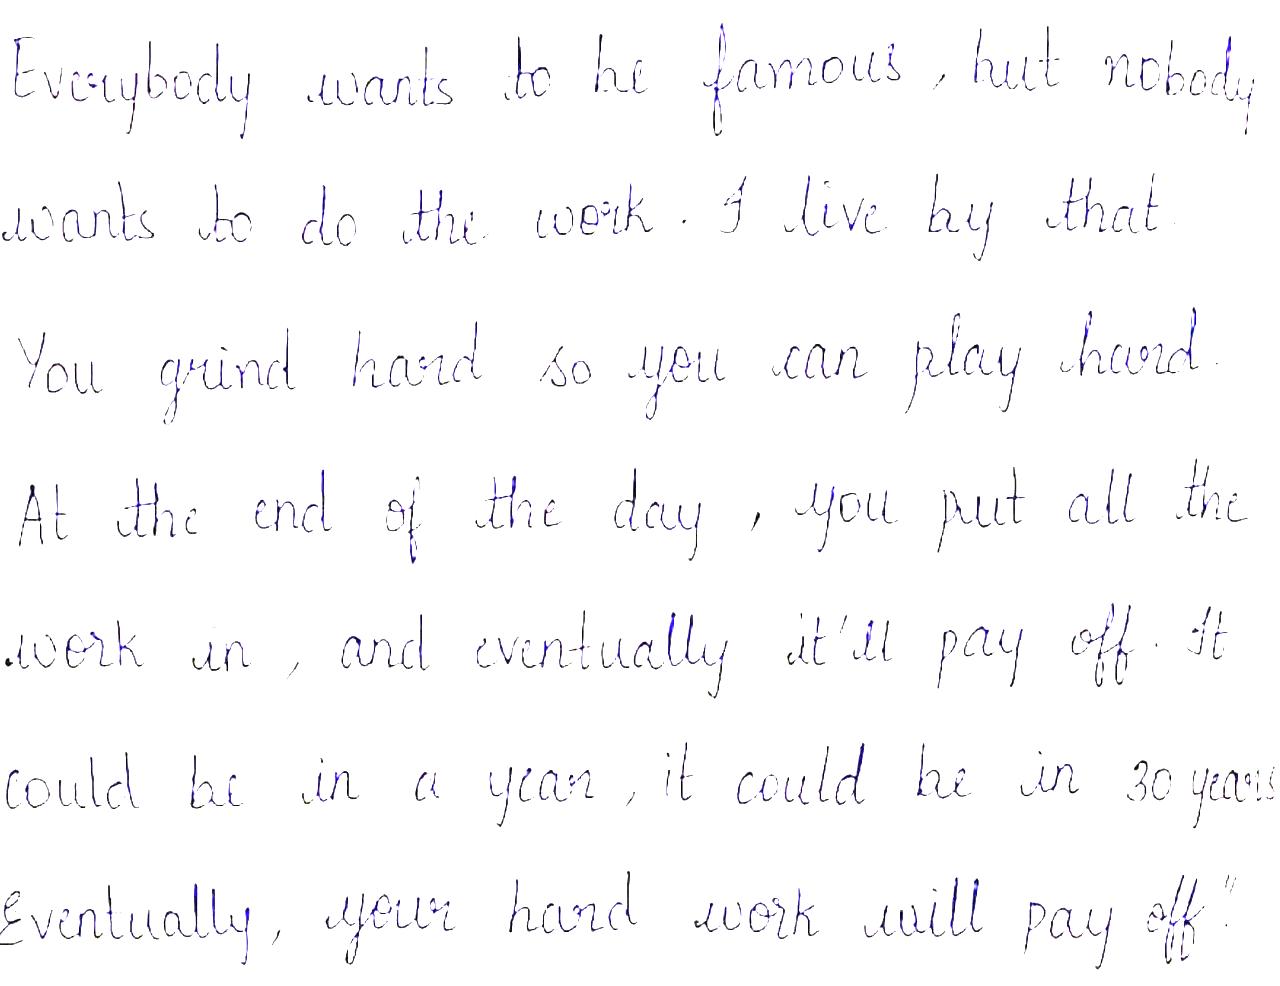 Everybody wants to be famous, but nobody
wants to do the work. I live by that.
You grind hard so you can play hard.
At the end of the day, you put all the
work in, and eventually it'll pay off. It
could be in a year, it could be in 30 years
Eventually, your hard work will pay off."